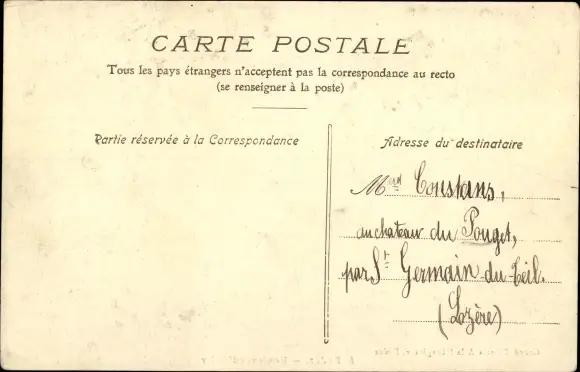 CARTE POSTALE
Tous les pays étrangers n'acceptent pas la correspondance au recto
(se renseigner à la poste)
Partie réservée à la Correspondance
Adresse du destinataire
Constans,
au château du Pouget,
par St Germain-du-Teil.
(Lozère)